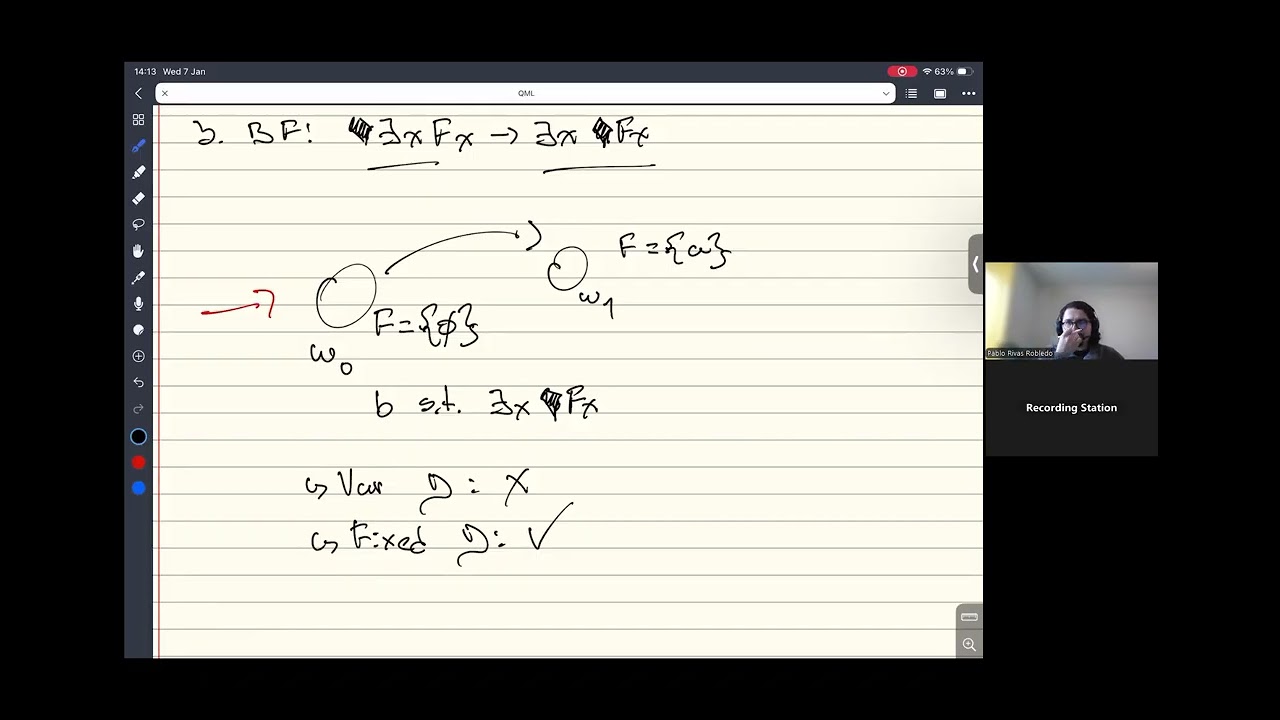 14:13 Wed 7 Jan
63%
QML
3. BF: ♦∃x Fx → ∃x ♦Fx
F = {a}
w₁
F = {ϕ}
w₀
b s.t. ∃x ♦Fx
↳ Var D: X
↳ Fixed D: ✓
Pablo Rivas Robledo
Recording Station